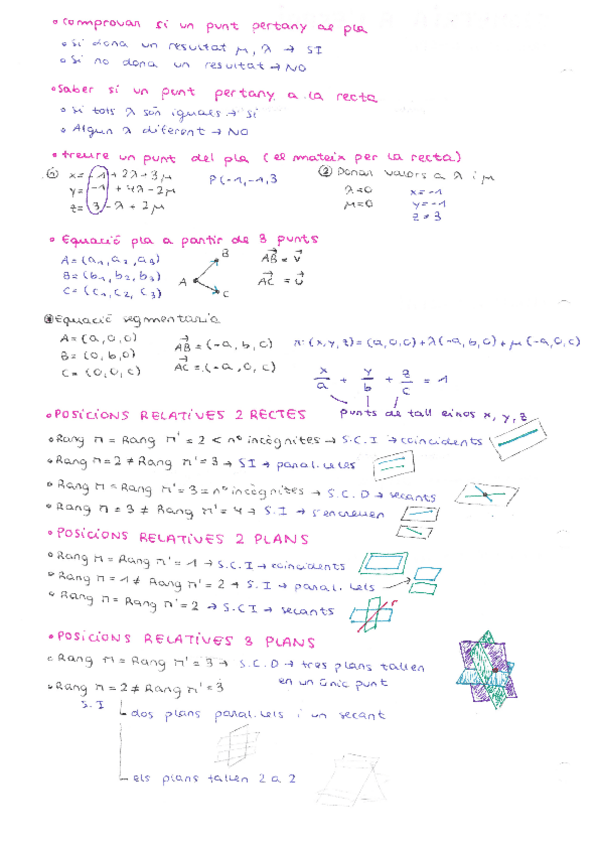 • Comprovar si un punt pertany al pla
• Si dona un resultat μ, λ → SI
• Si no dona un resultat → NO
• Saber si un punt pertany a la recta
• Si tots λ són iguals → Sí
• Algun λ diferent → NO
• treure un punt del pla (el mateix per la recta)
① x = -1 + 2λ - 3μ P(-1,-1,3 ② Donar valors a λ i μ
y = -1 + 4λ - 2μ λ=0 x = -1
z = 3 - λ + 2μ μ=0 y = -1
z = 3
• Equació pla a partir de 3 punts
A = (a₁, a₂, a₃) B AB = v
B = (b₁, b₂, b₃) A AC = u
C = (c₁, c₂, c₃) C
Equació segmentària
A = (a, 0, 0) AB = (-a, b, 0) π: (x, y, z) = (a, 0, 0) + λ(-a, b, 0) + μ(-a, 0, c)
B = (0, b, 0) AC = (-a, 0, c)
C = (0, 0, c) x/a + y/b + z/c = 1
punts de tall eixos x, y, z
• POSICIONS RELATIVES 2 RECTES
• Rang M = Rang M' = 2 < nº incògnites → S.C.I → coincidents
• Rang M = 2 ≠ Rang M' = 3 → SI → paral·leles
• Rang M = Rang M' = 3 = nº incògnites → S.C.D → secants
• Rang M = 3 ≠ Rang M' = 4 → S.I → s'encreuen
• POSICIONS RELATIVES 2 PLANS
• Rang M = Rang M' = 1 → S.C.I → coincidents
• Rang M = 1 ≠ Rang M' = 2 → S.I → paral·lels
• Rang M = Rang M' = 2 → S.C.I → secants r
• POSICIONS RELATIVES 3 PLANS
• Rang M = Rang M' = 3 → S.C.D → tres plans tallen
en un únic punt
• Rang M = 2 ≠ Rang M' = 3
S.I
dos plans paral·lels i un secant
els plans tallen 2 a 2